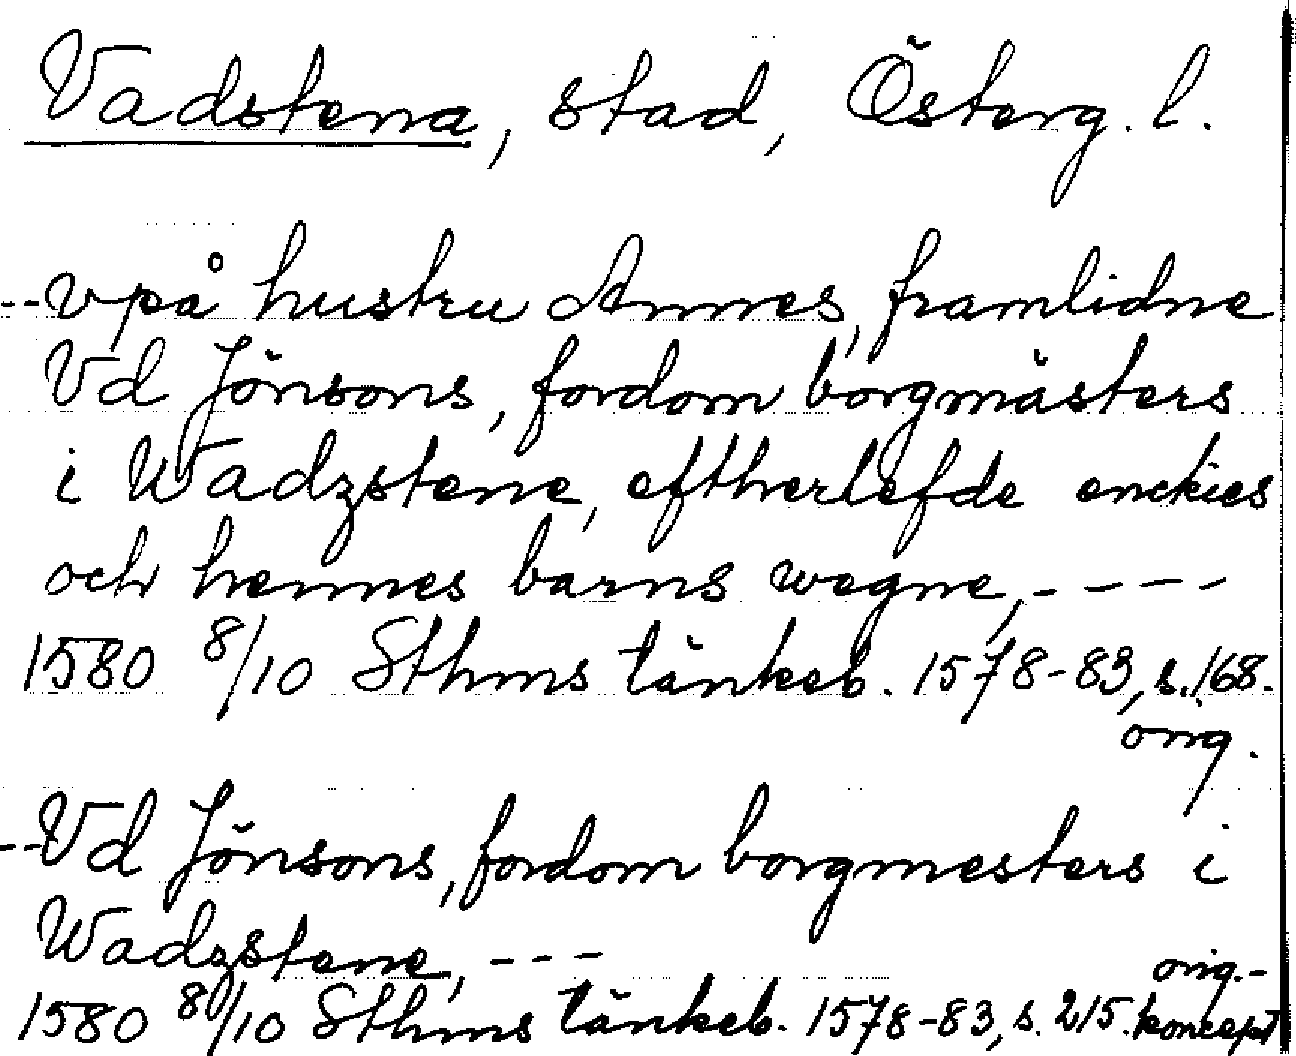 Vadstena, stad, Österg. l.
--vpå hustru Annes, framlidne
Vd Jönsons, fordom borgmästers
i Wadzstene, eftherlefde enckies
och hennes barns wegne, ----
1580 8/10 Sthms tänkeb. 1578-83, s. 168.
orig.
--Vd Jönsons, fordom borgmesters i
Wadzstene, ---
orig.-
1580 8/10 Sthms tänkeb. 1578-83, s. 215. koncept